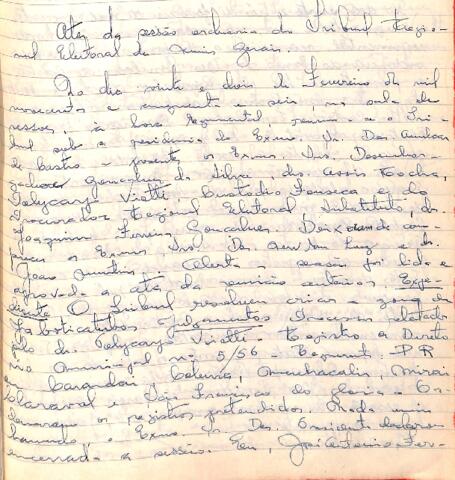 Ata da sessão ordinaria do Tribunal Regio-
nal Eleitoral de Minas Gerais.
Ao dia vinte e dois de Fevereiro de mil
novecentos e cinquenta e seis, na sala de
sessões, à hora regimental, reuniu-se o Tri-
bunal sob a presidencia do Exmo. Sr. Des. Amilcar
de Castro - presentes os Exmos. Srs. Desembar-
gador Gonçalves da Silva, drs. Assis Rocha,
Policarpo Viotti, Custodio Fonseca e do
Procurador Regional Eleitoral, Substituto, dr.
Joaquim Ferreira Gonçalves. Deixaram de com-
parecer os Exmos. Srs. Des. e dr.
João - A sessão foi lida e
aprovada a ata da reunião anterior. Expe-
diente O Tribunal resolveu criar a zona de
Jaboticatubas Julgamentos Processo relatado
pelo dr. Policarpo Viotti - Registro de Direto
rio Municipal nº 5/56 - Requerente - PR
em Carandaí Mirai
Claraval e São Francisco do Gloria -
os registros pretendidos. Nada mais
havendo, o Exmo. Sr. Des. Presidente declarou
encerrada a sessão. Eu, José Antonio Fer-